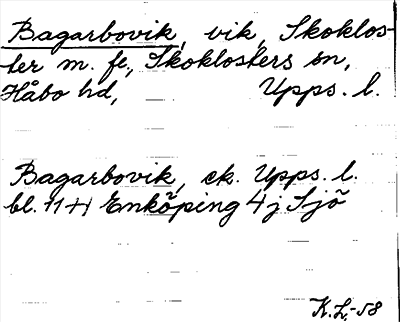 Bagarbovik, vik, Skoklos-
ter m. fl., Skoklosters sn,
Håbo hd, Upps. l.
Bagarbovik, ek. Upps. l.
bl. 71 Enköping 4 j Sjö
K.L.-58